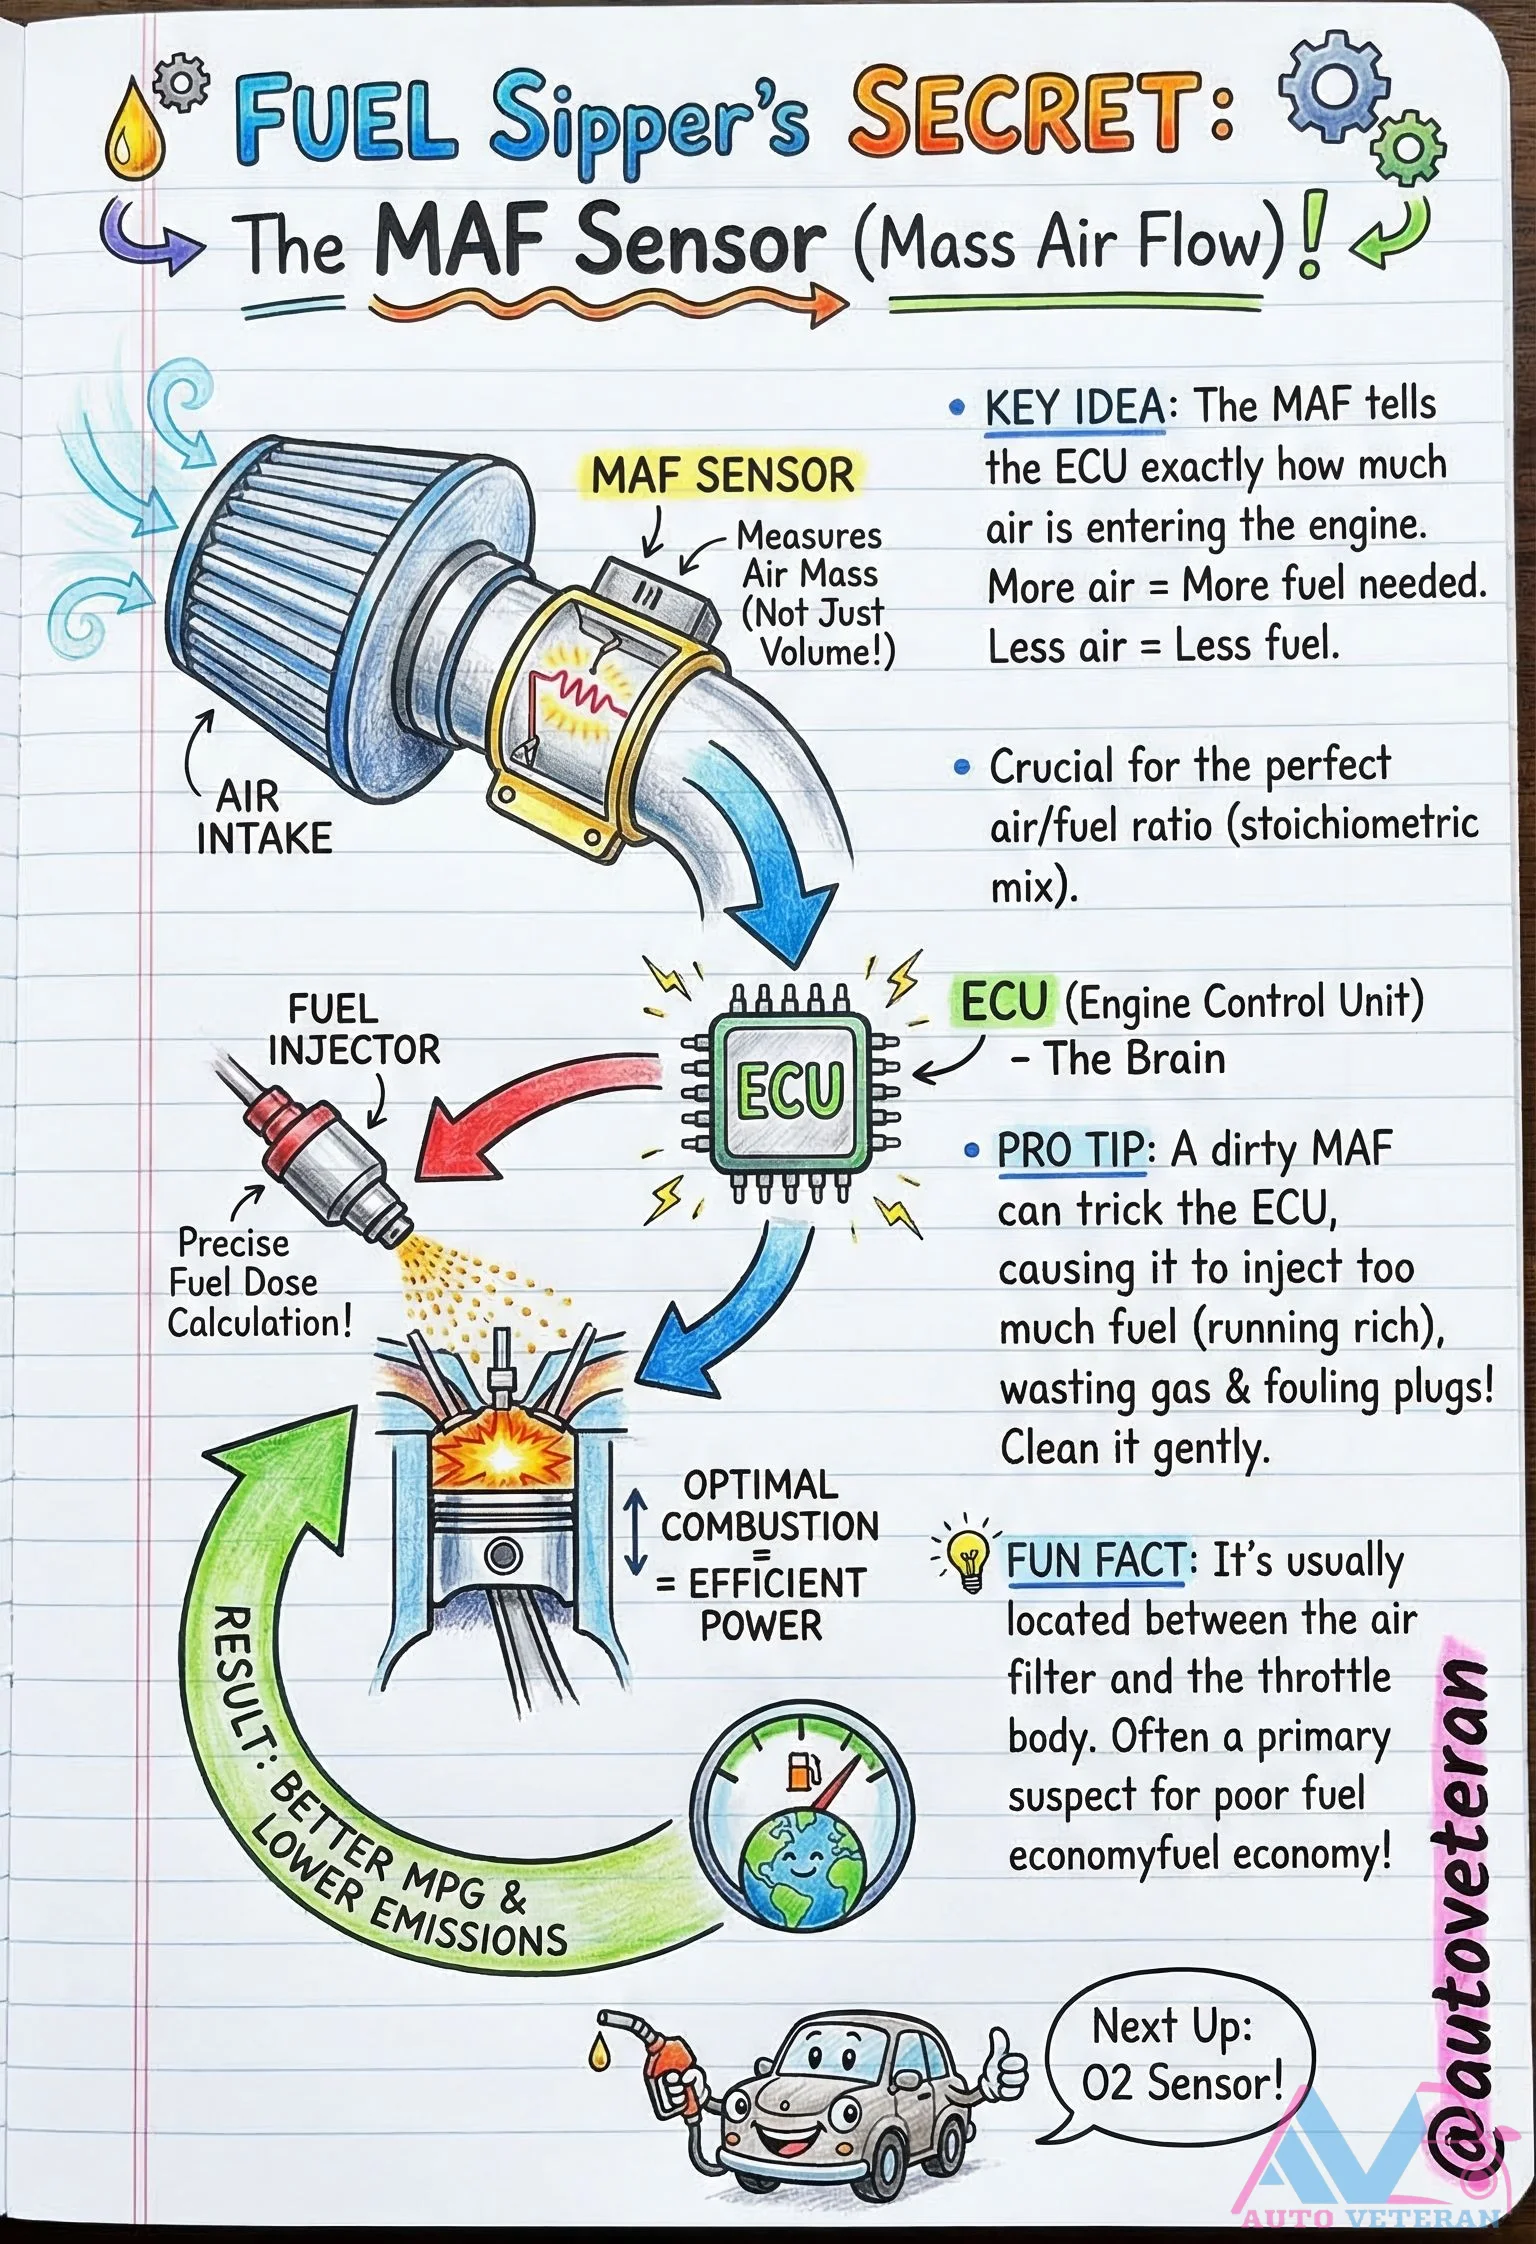 FUEL Sipper's SECRET:
The MAF Sensor (Mass Air Flow)!
MAF SENSOR
Measures
Air Mass
(Not Just
Volume!)
AIR
INTAKE
• KEY IDEA: The MAF tells
the ECU exactly how much
air is entering the engine.
More air = More fuel needed.
Less air = Less fuel.
• Crucial for the perfect
air/fuel ratio (stoichiometric
mix).
FUEL
INJECTOR
Precise
Fuel Dose
Calculation!
ECU
ECU (Engine Control Unit)
- The Brain
• PRO TIP: A dirty MAF
can trick the ECU,
causing it to inject too
much fuel (running rich),
wasting gas & fouling plugs!
Clean it gently.
OPTIMAL
COMBUSTION
=
= EFFICIENT
POWER
RESULT: BETTER MPG &
LOWER EMISSIONS
FUN FACT: It's usually
located between the air
filter and the throttle
body. Often a primary
suspect for poor fuel
economyfuel economy!
Next Up:
O2 Sensor!
@autoveteran
AV
AUTO VETERAN